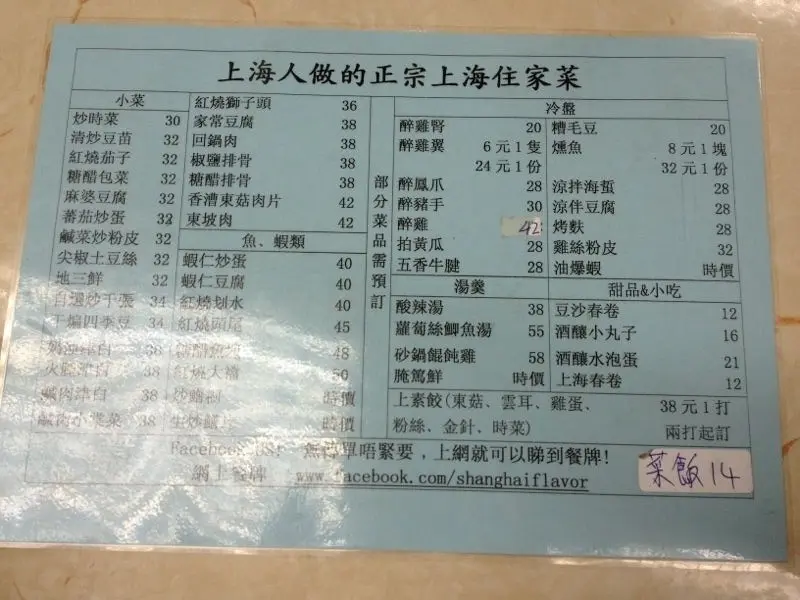 上海人做的正宗上海住家菜
小菜
炒時菜 30
清炒豆苗 32
紅燒茄子 32
糖醋包菜 32
麻婆豆腐 32
蕃茄炒蛋 32
鹹菜炒粉皮 32
尖椒土豆絲 32
地三鮮 32
34
干煸四季豆 34
38
38
鹹肉津白 38
38
紅燒獅子頭 36
家常豆腐 38
回鍋肉 38
椒鹽排骨 38
糖醋排骨 38
香漕東菇肉片 42
東坡肉 42
魚、蝦類
蝦仁炒蛋 40
蝦仁豆腐 40
紅燒划水 40
紅燒頭尾 45
48
50
時價
時價
部分菜品需預訂
冷盤
醉雞腎 20
醉雞翼 6元1隻
24元1份
醉鳳爪 28
醉豬手 30
醉雞 42
拍黃瓜 28
五香牛腱 28
糟毛豆 20
燻魚 8元1塊
32元1份
涼拌海蜇 28
涼伴豆腐 28
烤麩 28
雞絲粉皮 32
油爆蝦 時價
湯羹
酸辣湯 38
蘿蔔絲鯽魚湯 55
砂鍋餛飩雞 58
腌篤鮮 時價
甜品&小吃
豆沙春卷 12
酒釀小丸子 16
酒釀水泡蛋 21
上海春卷 12
上素餃(東菇、雲耳、雞蛋、 38元1打
粉絲、金針、時菜) 兩打起訂
單唔緊要，上網就可以睇到餐牌!
網上餐牌 www.facebook.com/shanghaiflavor
菜飯 14